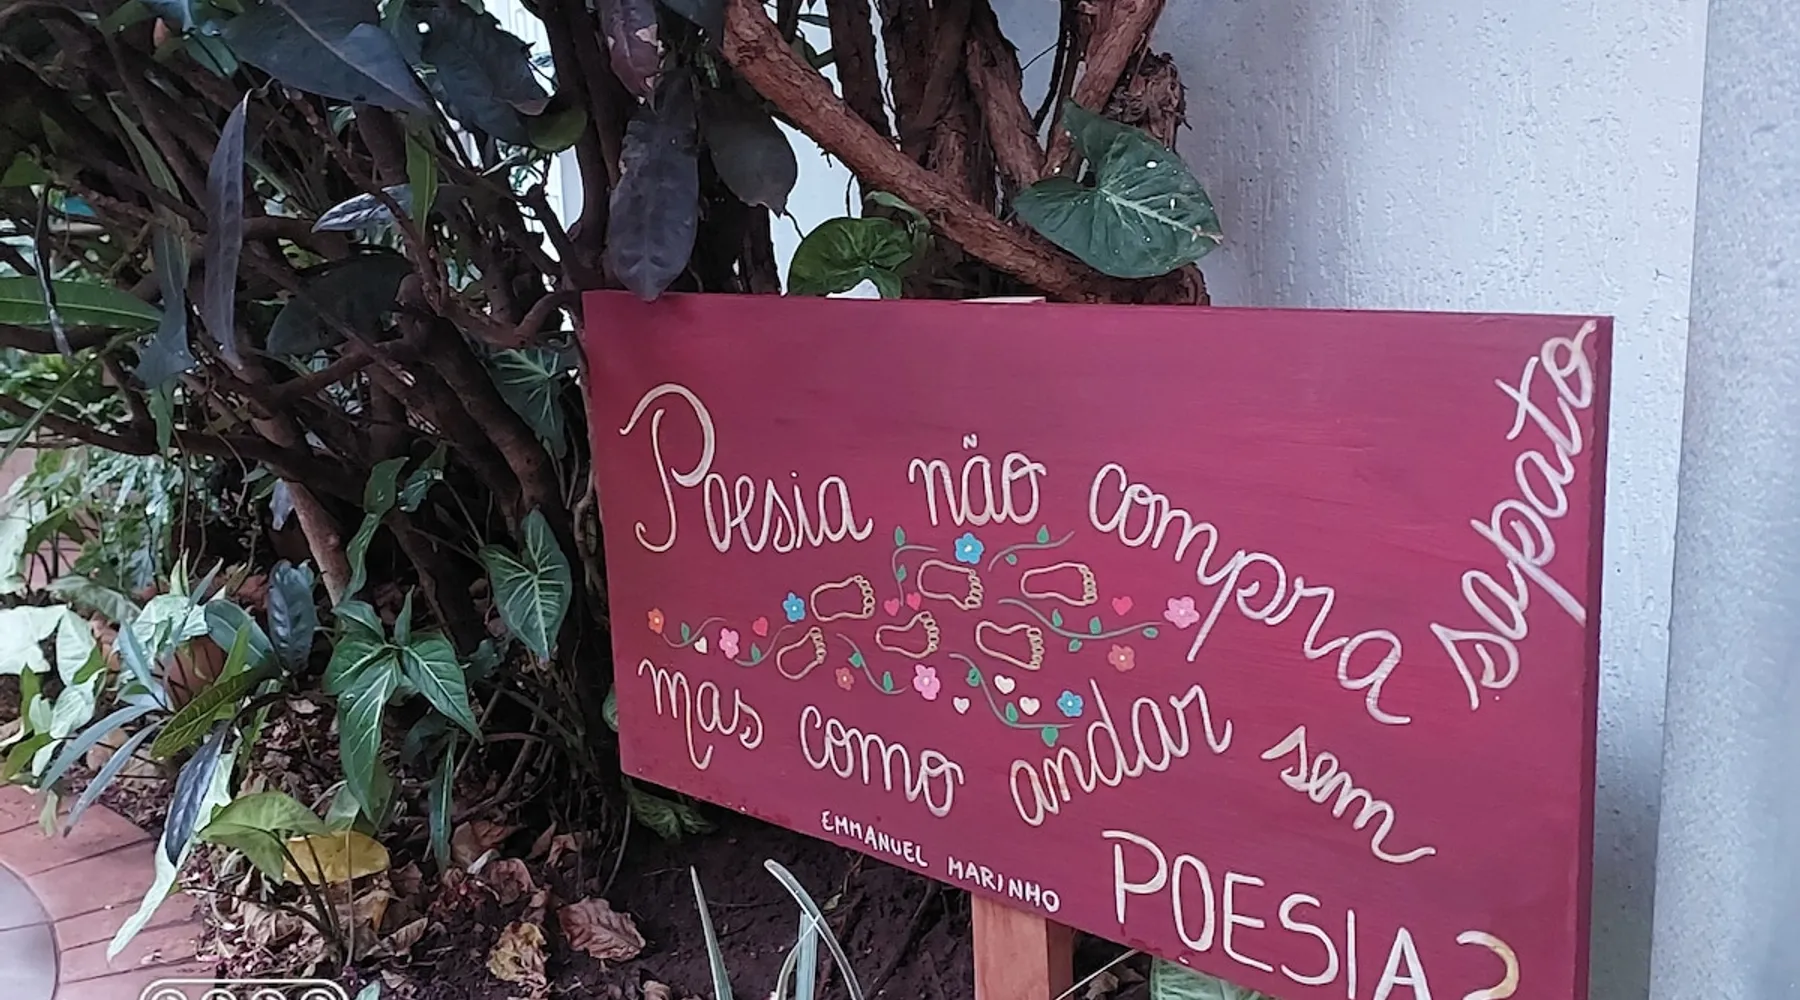 Poesia não compra sapato
mas como andar sem
POESIA?
EMMANUEL MARINHO